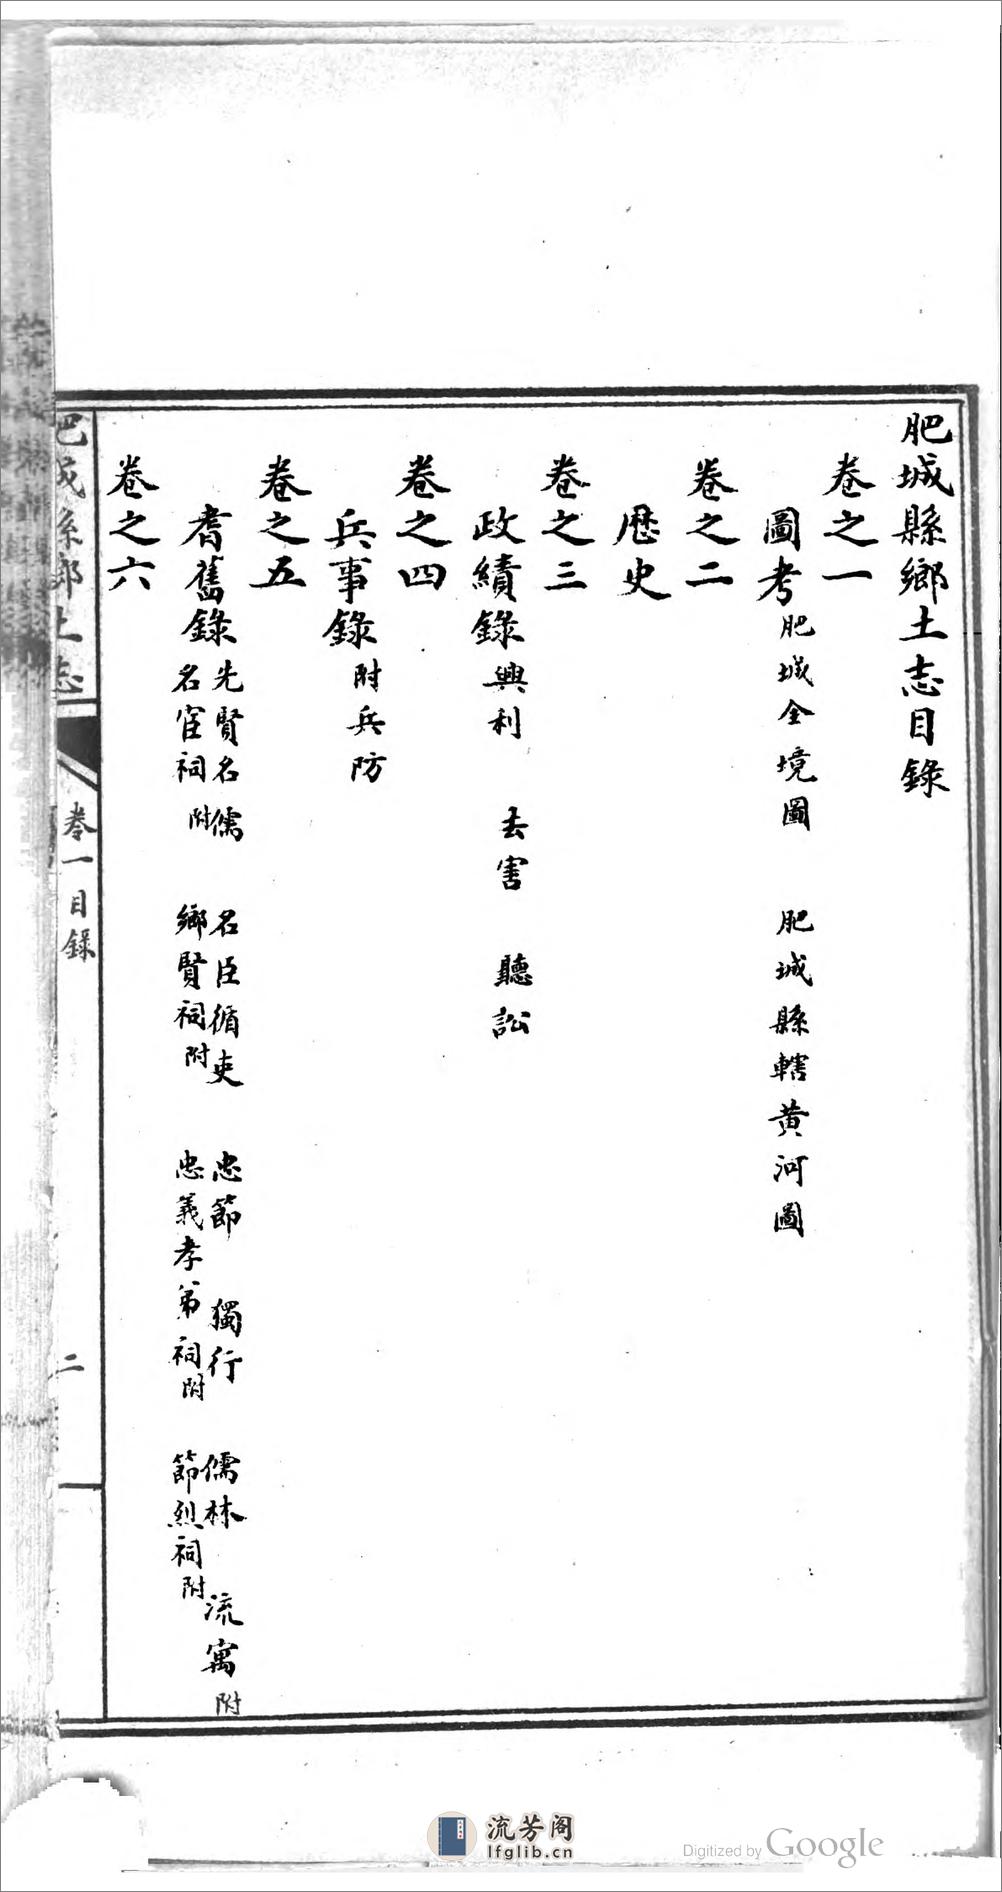 肥城縣鄉土志目錄
卷之一
圖考 肥城全境圖 肥城縣轄黃河圖
卷之二
歷史
卷之三
政績錄 興利 去害 聽訟
卷之四
兵事錄 附兵防
卷之五
耆舊錄 先賢名儒 名臣循吏 忠節 獨行 儒林 流寓附
名宦祠附 鄉賢祠附 忠義孝弟祠附 節烈祠附
卷之六
肥城縣鄉土志 卷一目錄 二
流芳阁
lfglib.cn
Digitized by Google